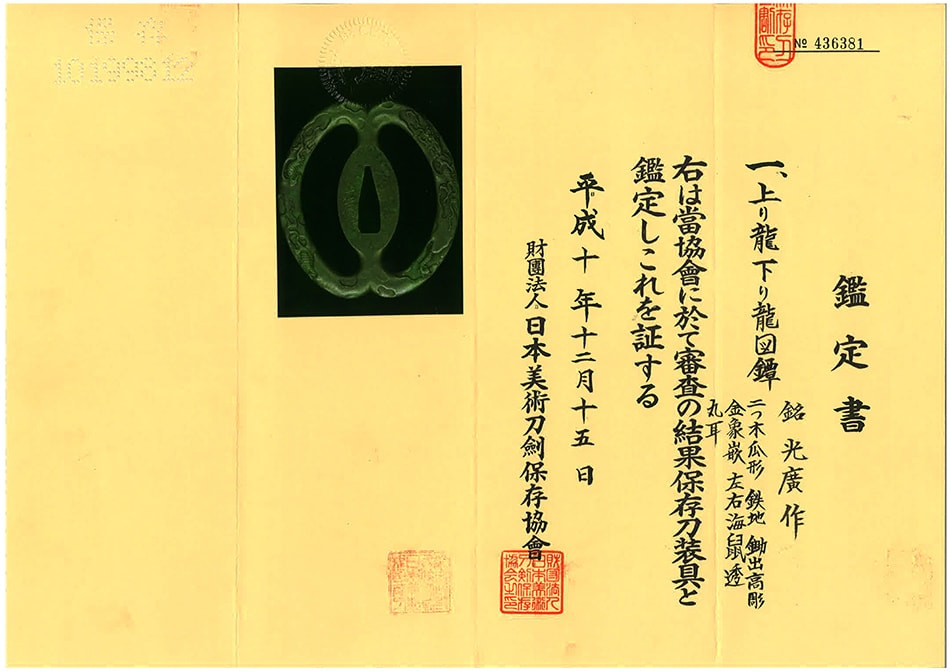 № 436381
鑑定書
一、上り龍下り龍図鐔
銘 光廣作
二つ木瓜形 鉄地 鋤出高彫
金象嵌 左右海鼠透
丸耳
右は當協會に於て審査の結果保存刀装具と
鑑定しこれを証する
平成十年十二月十五日
財團法人日本美術刀劍保存協會
保存
10199812